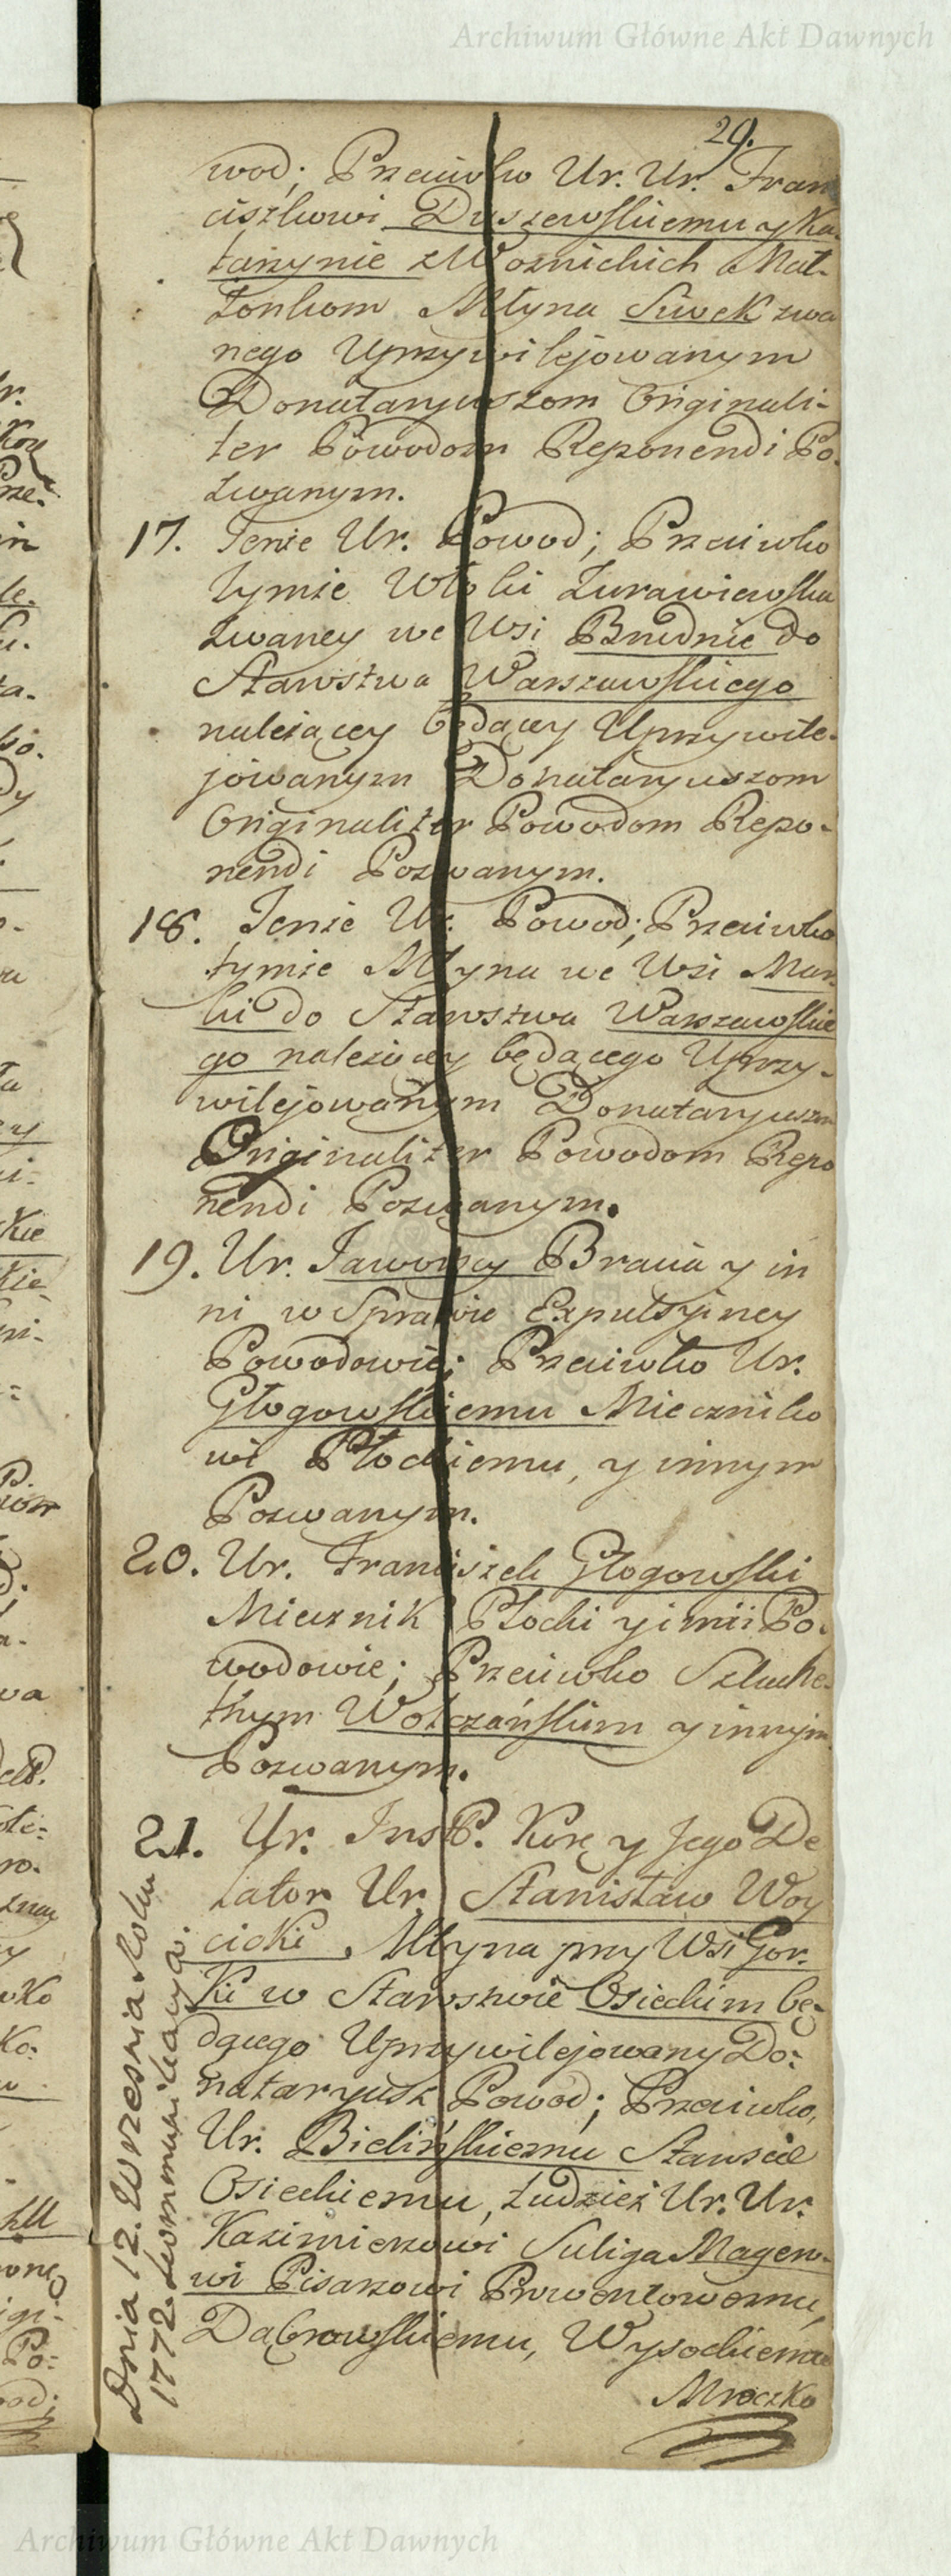 Archiwum Główne Akt Dawnych
29.
wod; Przeciwko Ur. Ur. Fran
ciszkowi Duszewskiemu y Ka-
tarzynie z Woznickich Mał-
żonkom Młyna Siwek zwa
nego Uprzywilejowanym
Donataryuszom Originali-
ter Powodom Reponendi Po-
zwanym.
17. Tenże Ur. Powod; Przeciwko
tymże Włoki Zurawiewska
zwaney we Wsi Brudnie do
Starostwa Warszawskiego
należącey będącey Uprzywile-
jowanym Donataryuszom
Originaliter Powodom Repo-
nendi Pozwanym.
18. Tenże Ur. Powod; Przeciwko
tymże Młyna we Wsi Mar-
ki do Starostwa Warszawskie
go należącey będącego Uprzy-
wilejowanym Donataryuszom
Originaliter Powodom Repo
nendi Pozwanym.
19. Ur. Jaworscy Bracia y in
ni w Sprawie Expulsyiney
Powodowie; Przeciwko Ur.
Głogowskiemu Mieczniko
wi Płockiemu, y innym
Pozwanym.
20. Ur. Franciszek Głogowski
Miecznik Płocki y inni Po-
wodowie; Przeciwko Szlache-
tnym Wolczańskim y innym
Pozwanym.
21. Ur. Inst. Kor. y Jego De
lator Ur. Stanisław Woy
cicki, Młyna przy Wsi Gor-
ki w Starostwie Osieckim bę-
dącego Uprzywilejowany Do:
nataryusz Powod; Przeciwko,
Ur. Bielińskiemu Staroscie
Osieckiemu, tudzież Ur. Ur.
Kazimierzowi Suliga Magero-
wi Pisarzowi Prowentowemu,
Dąbrowskiemu, Wysockiemu
Mroczko
Dnia 12. Wrzesnia Roku
1772 kommunikacya.
Archiwum Główne Akt Dawnych